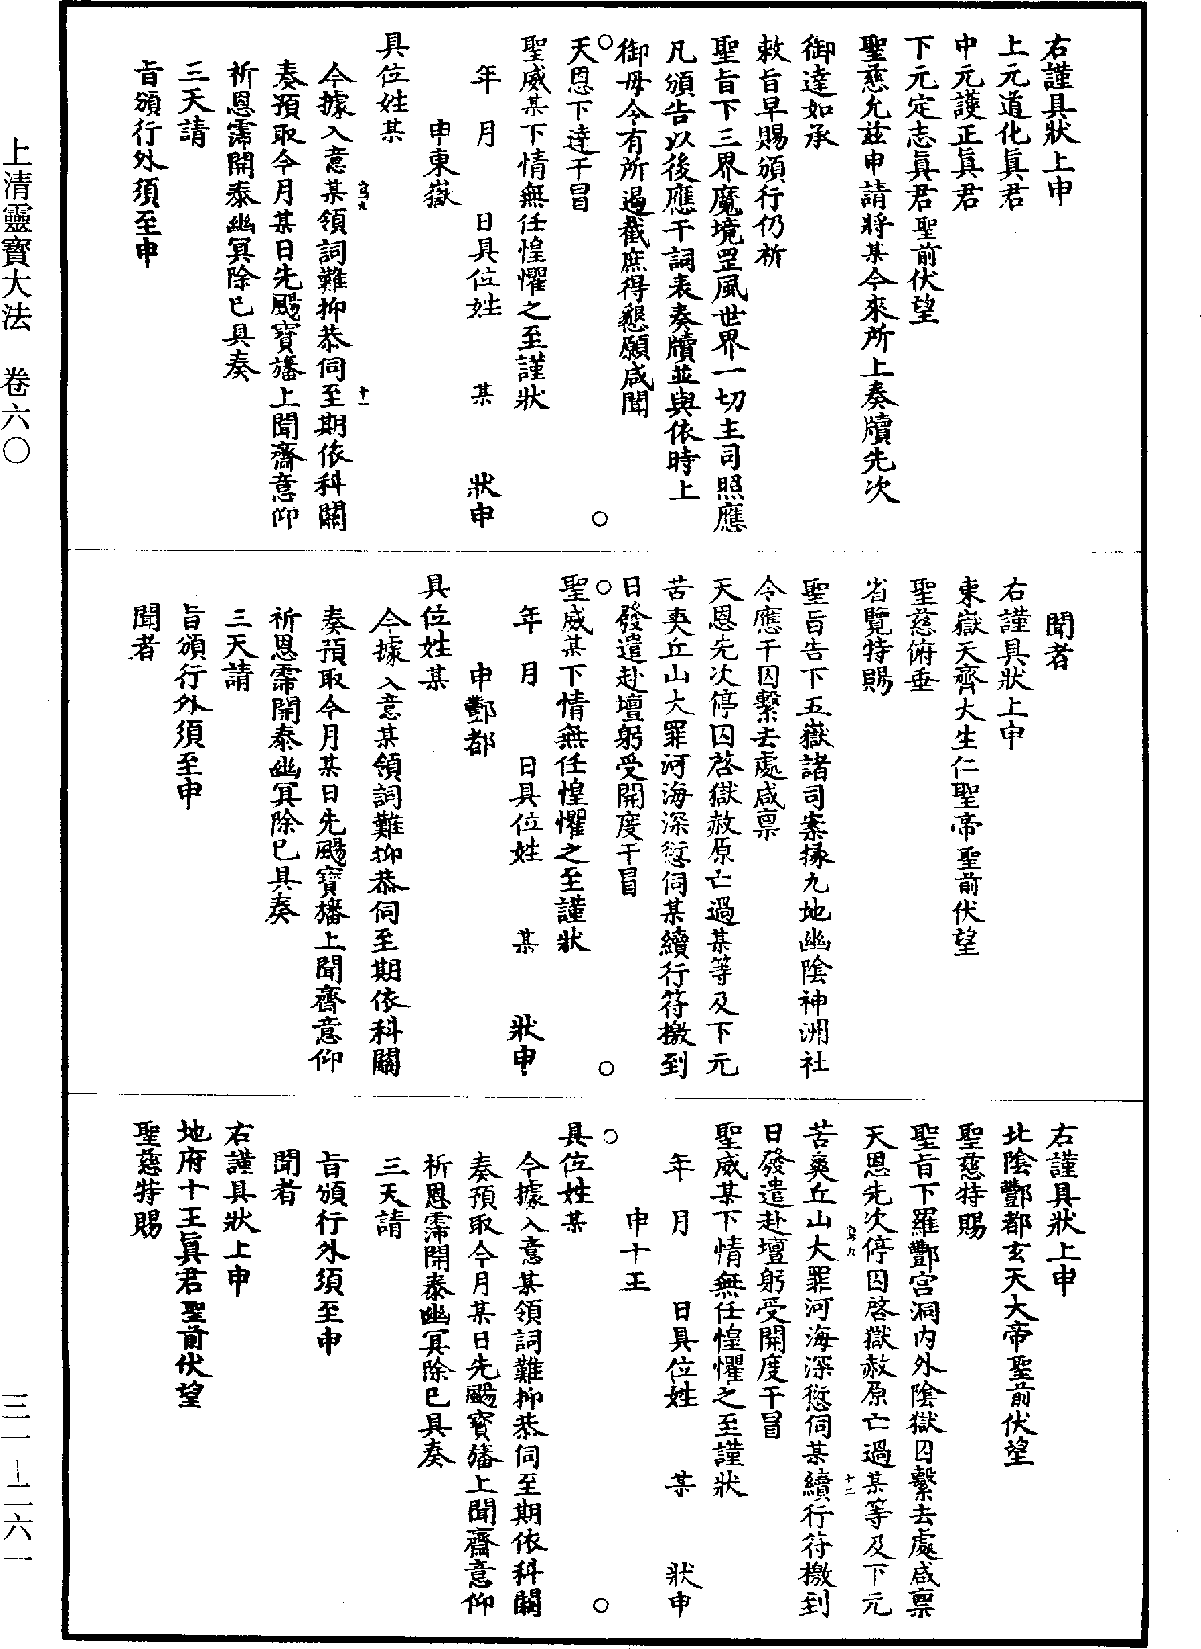 右謹具狀上申
上元道化真君
中元護正真君
下元定志真君聖前伏望
聖慈允茲申請將某今來所上奏牘先次
御達如承
敕旨早賜頒行仍祈
聖旨下三界魔境罡風世界一切主司照應
凡頒告以後應干詞表奏牘並與依時上
御毋令有所遏截庶得懇願咸聞
天恩下逹干冒
聖威某下情無任惶懼之至謹狀
年　月　　日具位姓　　某　　狀申
申東嶽
具位姓某
今據入意某領詞難抑恭伺至期依科關
奏預取今月某日先颺寶旛上聞齋意仰
祈恩霈開泰幽冥除已具奏
三天請
旨頒行外須至申
聞者
右謹具狀上申
東嶽天齊大生仁聖帝聖前伏望
聖慈俯垂
省覽特賜
聖旨告下五嶽諸司案掾九地幽陰神洲社
令應干囚繫去處咸稟
天恩先次停囚啓獄赦原亡過某等及下元
苦爽丘山大罪河海深愆伺某續行符檄到
日發遣赴壇躬受開度干冒
聖威某下情無任惶懼之至謹狀
年　月　　日具位姓　　某　　狀申
申酆都
具位姓某
今據入意某領詞難抑恭伺至期依科關
奏預取今月某日先颺寶旛上聞齋意仰
祈恩霈開泰幽冥除已具奏
三天請
旨頒行外須至申
聞者
右謹具狀上申
北陰酆都玄天大帝聖前伏望
聖慈特賜
聖旨下羅酆宮洞內外陰獄囚繫去處咸稟
天恩先次停囚啓獄赦原亡過某等及下元
苦爽丘山大罪河海深愆伺某續行符檄到
日發遣赴壇躬受開度干冒
聖威某下情無任惶懼之至謹狀
年　月　　日具位姓　　某　　狀申
申十王
具位姓某
今據入意某領詞難抑恭伺至期依科關
奏預取今月某日先颺寶旛上聞齋意仰
祈恩霈開泰幽冥除已具奏
三天請
旨頒行外須至申
聞者
右謹具狀上申
地府十王真君聖前伏望
聖慈特賜
上清靈寶大法　卷六〇
三一－二六一